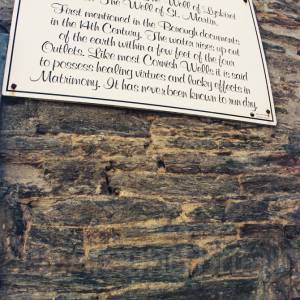 Well of Lyskiret
The Well of St. Martin.
First mentioned in the Borough documents
in the 14th Century. The water rises up out
of the earth within a few feet of the four
Outlets. Like most Cornish Wells it is said
to possess healing virtues and lucky effects in
Matrimony. It has never been known to run dry.